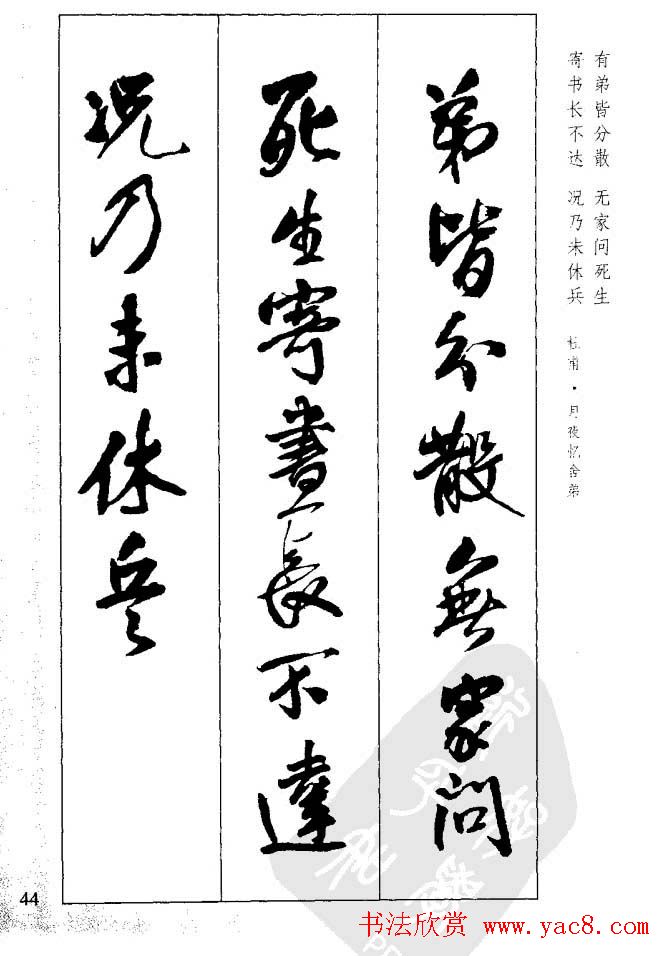 有弟皆分散 无家问死生
寄书长不达 况乃未休兵 杜甫·月夜忆舍弟
弟皆分散無家問
死生寄書長不達
況乃未休兵
44
书法欣赏 www.yac8.com